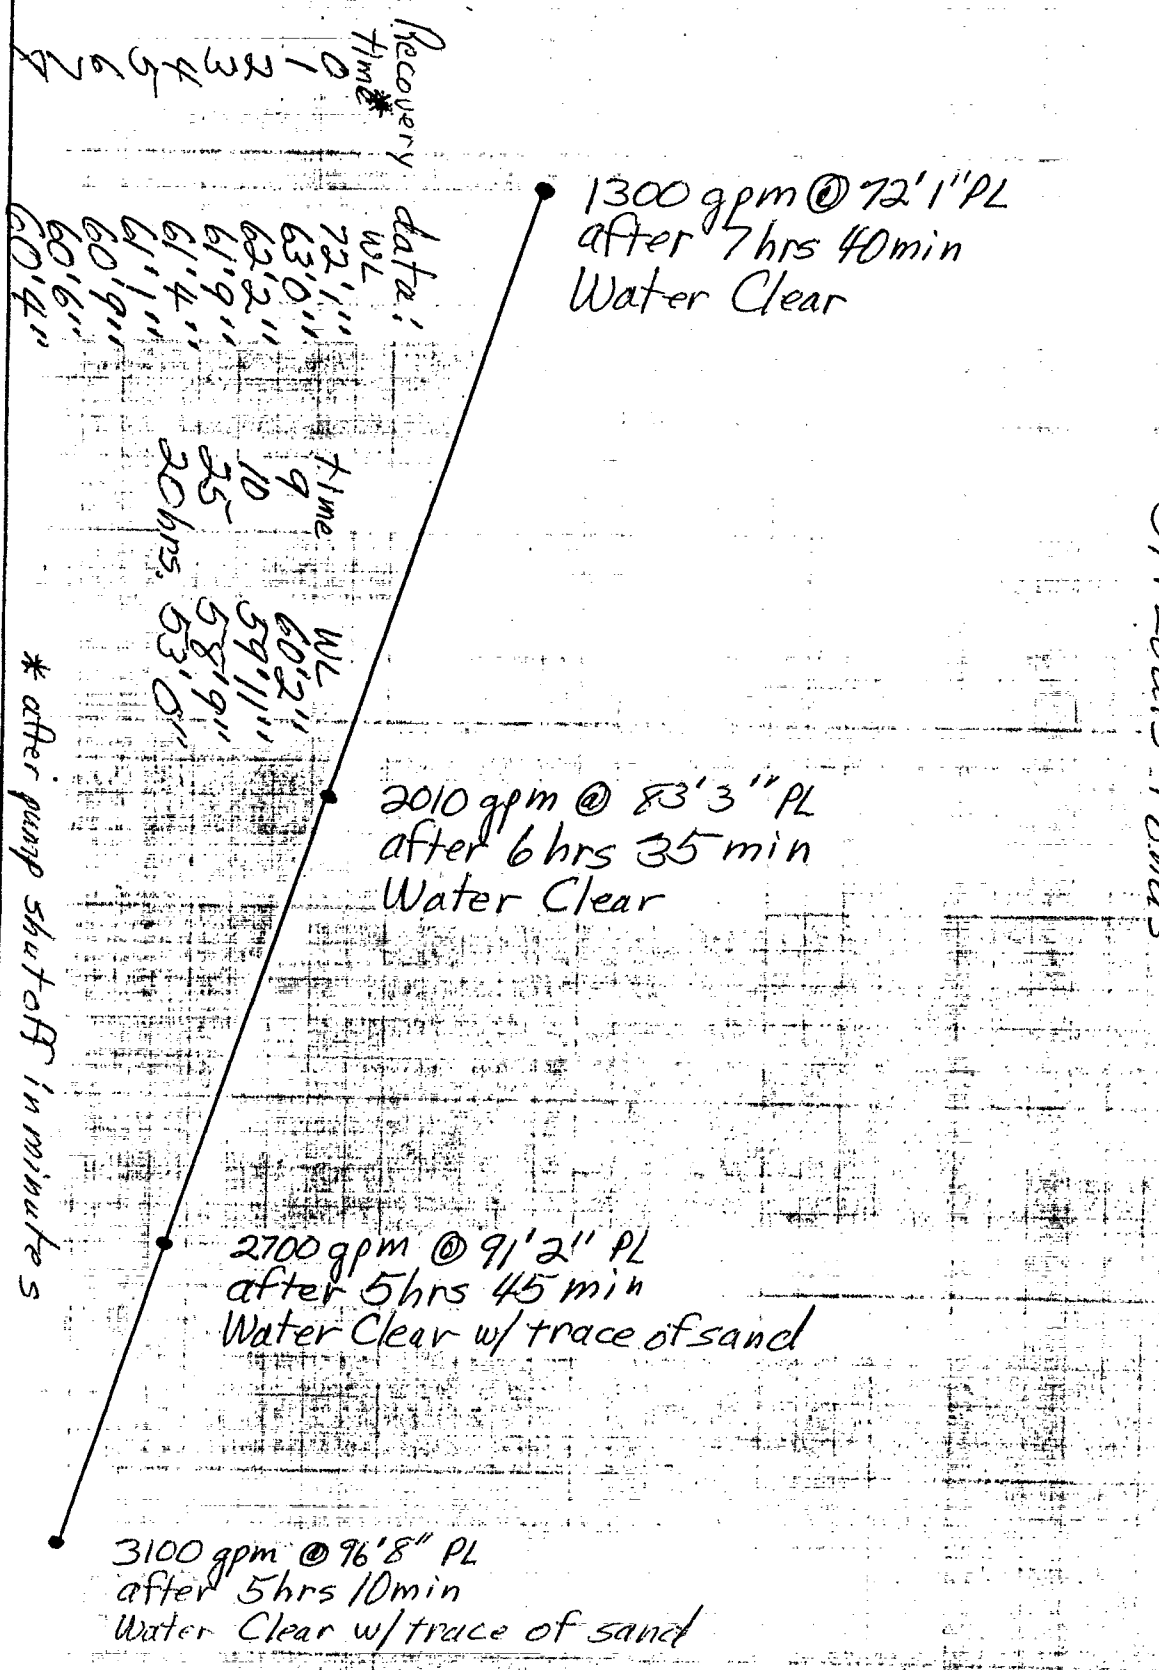 1300 gpm @ 72'1" PL
after 7 hrs 40 min
Water Clear
2010 gpm @ 83'3" PL
after 6 hrs 35 min
Water Clear
2700 gpm @ 91'2" PL
after 5 hrs 45 min
Water Clear w/ trace of sand
3100 gpm @ 96'8" PL
after 5 hrs 10 min
Water Clear w/ trace of sand
Recovery data:
time* WL time WL
0 72'1" 9 60'2"
1 63'0" 10 59'11"
2 62'2" 25 58'9"
3 61'9" 20 hrs. 53'0"
4 61'4"
5 61'1"
6 60'9"
7 60'6"
8 60'4"
* after pump shutoff in minutes